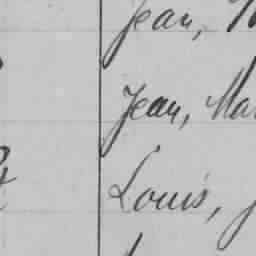 Jean,
Jean, Ma
Louis,